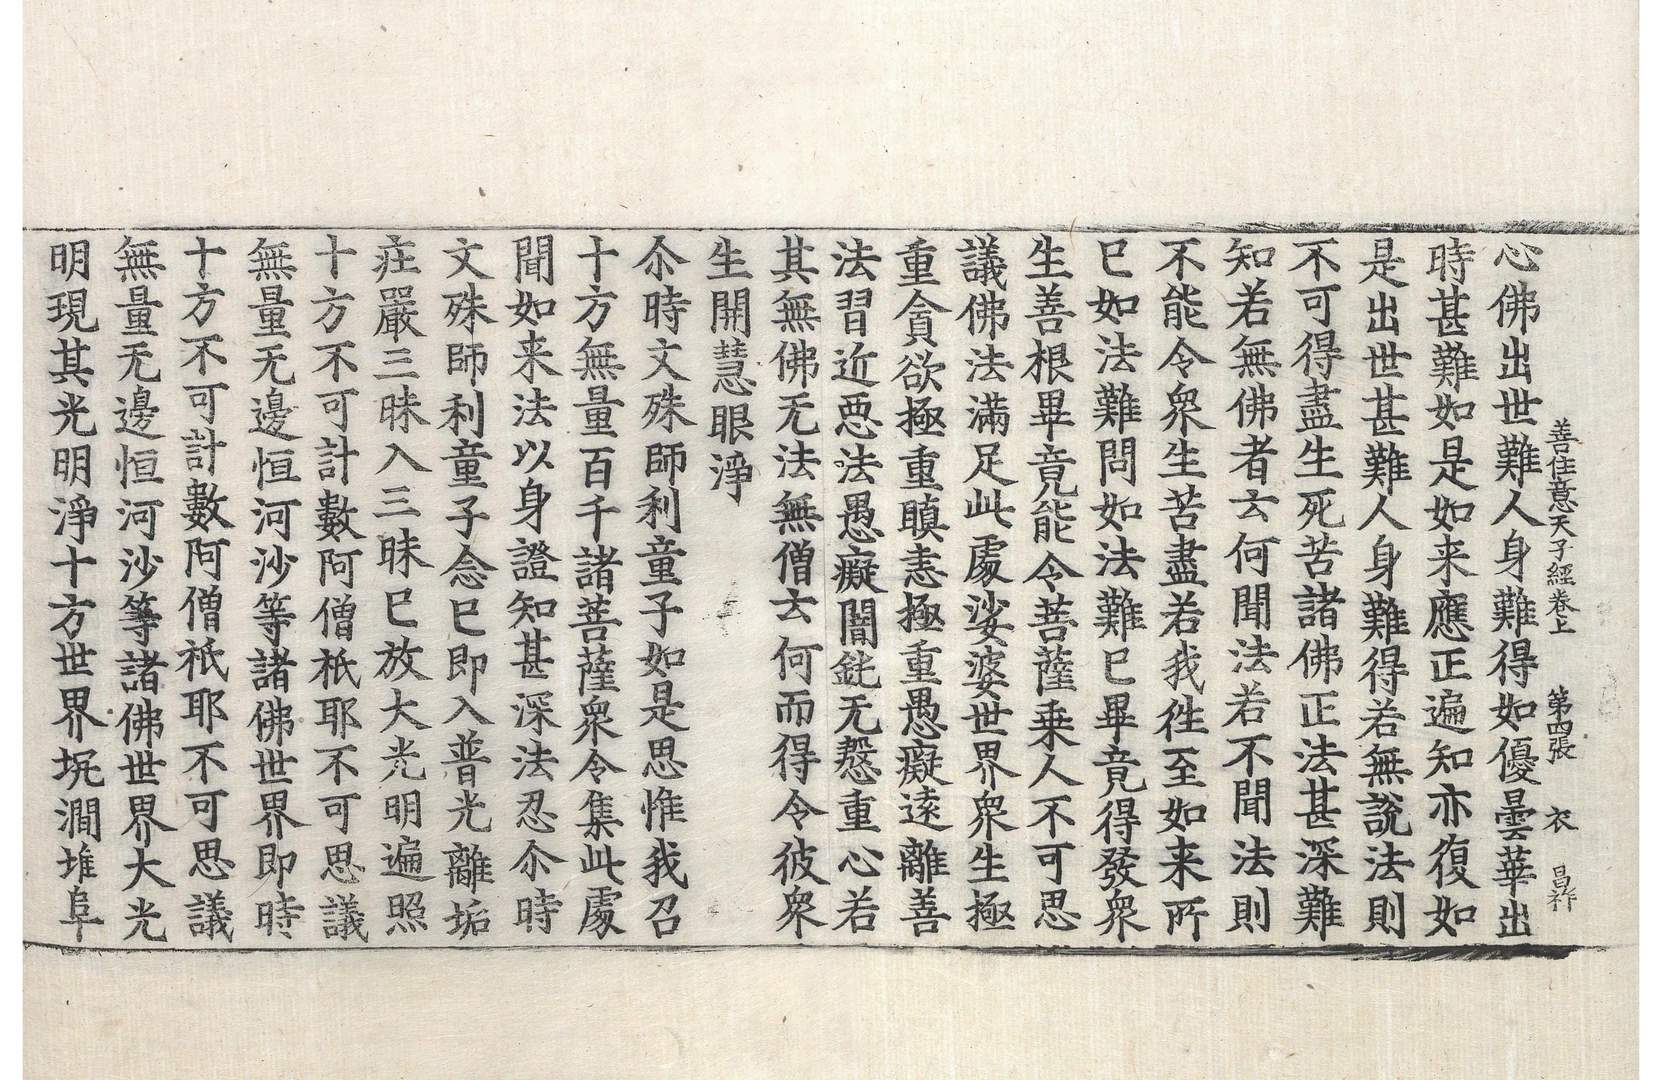 善住意天子經卷上 第四張 衣 昌祚
心佛出世難人身難得如優曇華出
時甚難如是如来應正遍知亦復如
是出世甚難人身難得若無說法則
不可得盡生死苦諸佛正法甚深難
知若無佛者云何聞法若不聞法則
不能令衆生苦盡若我往至如来所
已如法難問如法難已畢竟得發衆
生善根畢竟能令菩薩乗人不可思
議佛法滿足此處娑婆世界衆生極
重貪欲極重瞋恚極重愚癡遠離善
法習近悪法愚癡闇鈍无慙重心若
其無佛无法無僧云何而得令彼衆
生開慧眼淨
尒時文殊師利童子如是思惟我召
十方無量百千諸菩薩衆令集此處
聞如来法以身證知甚深法忍尒時
文殊師利童子念已即入普光離垢
莊嚴三昧入三昧已放大光明遍照
十方不可計數阿僧祇耶不可思議
無量无邊恒河沙等諸佛世界即時
十方不可計數阿僧祇耶不可思議
無量无邊恒河沙等諸佛世界大光
明現其光明淨十方世界坑澗堆阜